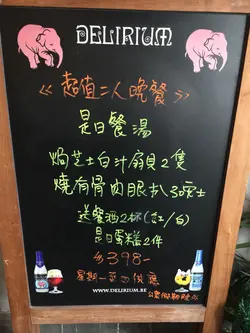 DELIRIUM
《超值二人晚餐》
是日餐湯
焗芝士白汁扇貝2隻
燒有骨肉眼扒30安士
送餐酒2杯(紅/白)
是日蛋糕2件
$398-
星期一至四供應
WWW.DELIRIUM.BE
公眾假期除外